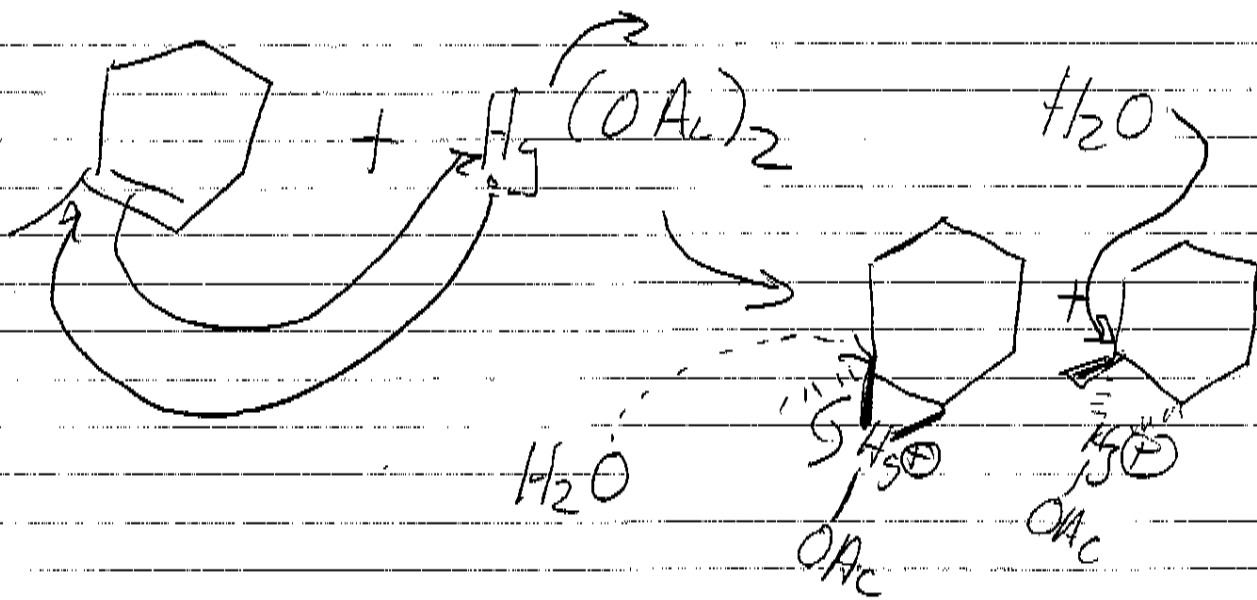 + Hg(OAc)2
H2O
+
H2O
Hg⊕
OAc
Hg⊕
OAc